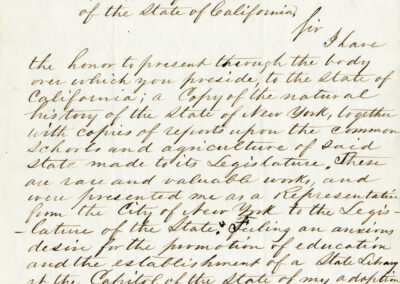 of the State of California,
Sir
I have
the honor to present through the body
over which you preside, to the State of
California; a Copy of the natural
history of the State of New York, together
with copies of reports upon the common
Schools and agriculture of said
State made to its Legislature. These
are rare and valuable works, and
were presented me as a Representative
from the City of New York to the Legis-
-lature of the State. Feeling an anxious
desire for the promotion of education
and the establishment of a State Library
at the Capitol of the State of my adoption